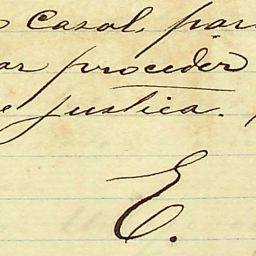 o Casal, par
ar proceder
e justica.
E.